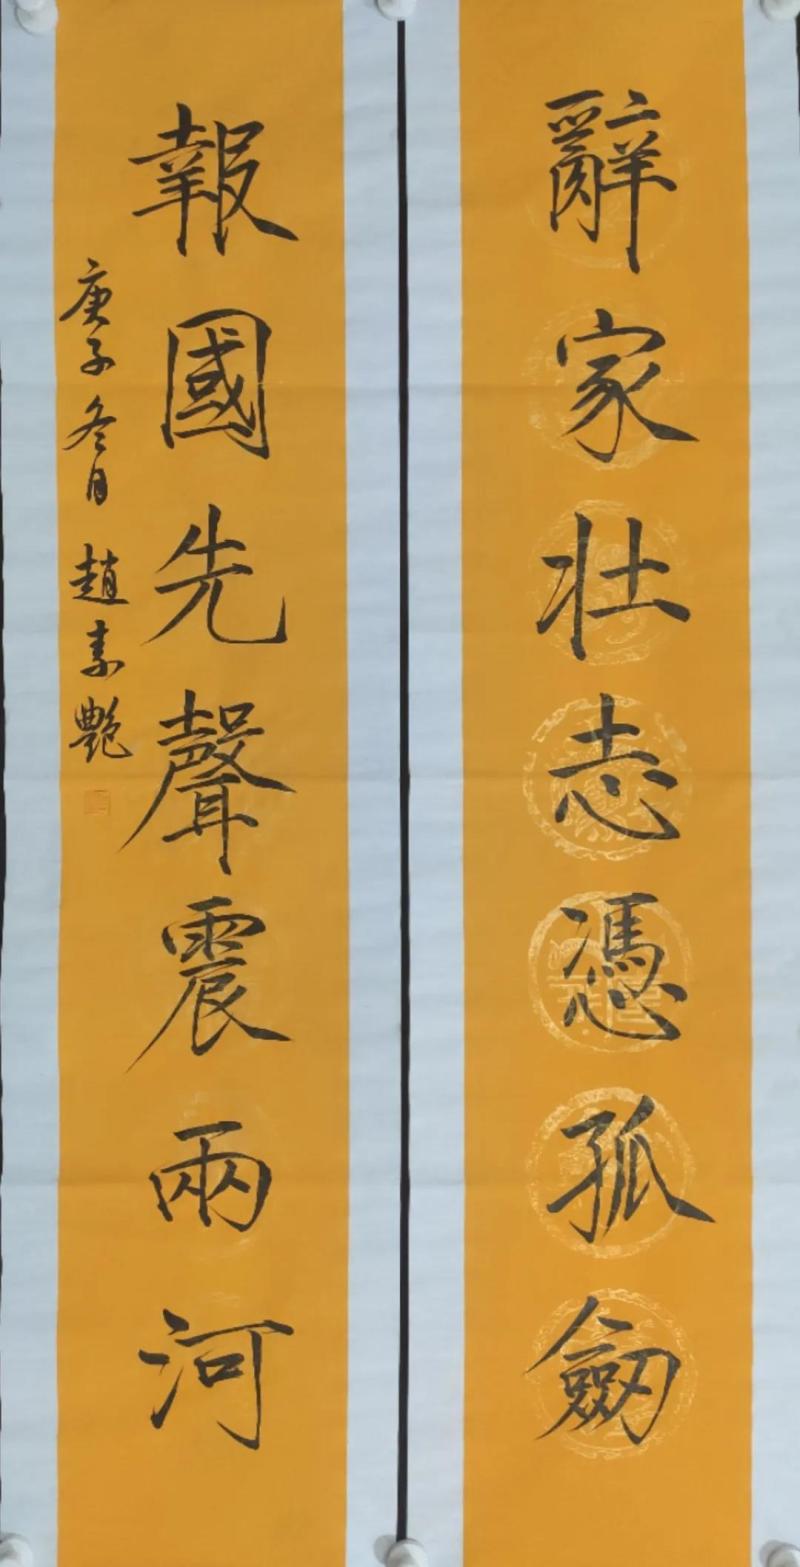 辭家壯志憑孤劍
報國先聲震兩河
庚子冬月 趙素艷